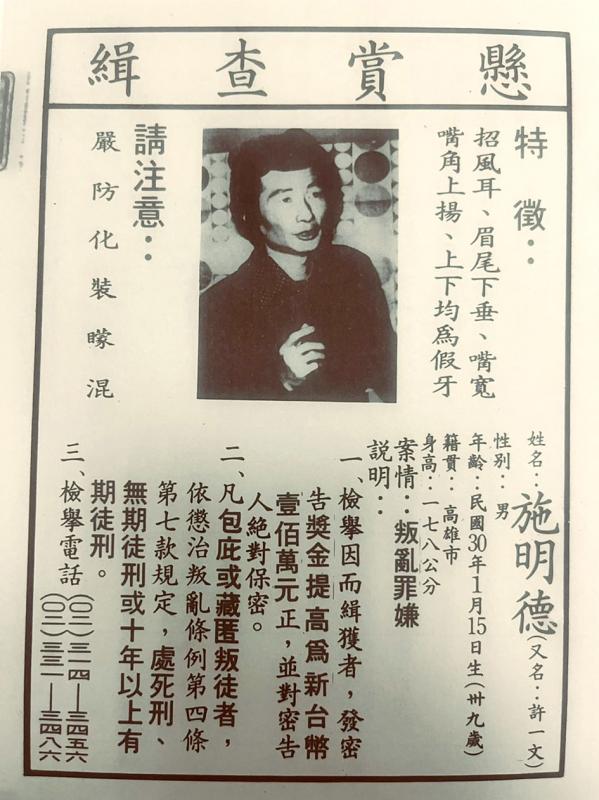 懸賞查緝
特徵：
招風耳、眉尾下垂、嘴寬
嘴角上揚、上下均為假牙
請注意：
嚴防化裝矇混
姓名：施明德(又名：許一文)
性別：男
年齡：民國30年1月15日生(卅九歲)
籍貫：高雄市
身高：一七八公分
案情：叛亂罪嫌
説明：
一、檢舉因而緝獲者，發密
告獎金提高為新台幣
壹佰萬元正，並對密告
人絕對保密。
二、凡包庇或藏匿叛徒者，
依懲治叛亂條例第四條
第七款規定，處死刑、
無期徒刑或十年以上有
期徒刑。
三、檢舉電話
(〇二)三一四—三四五六
(〇二)三三一—三四八六